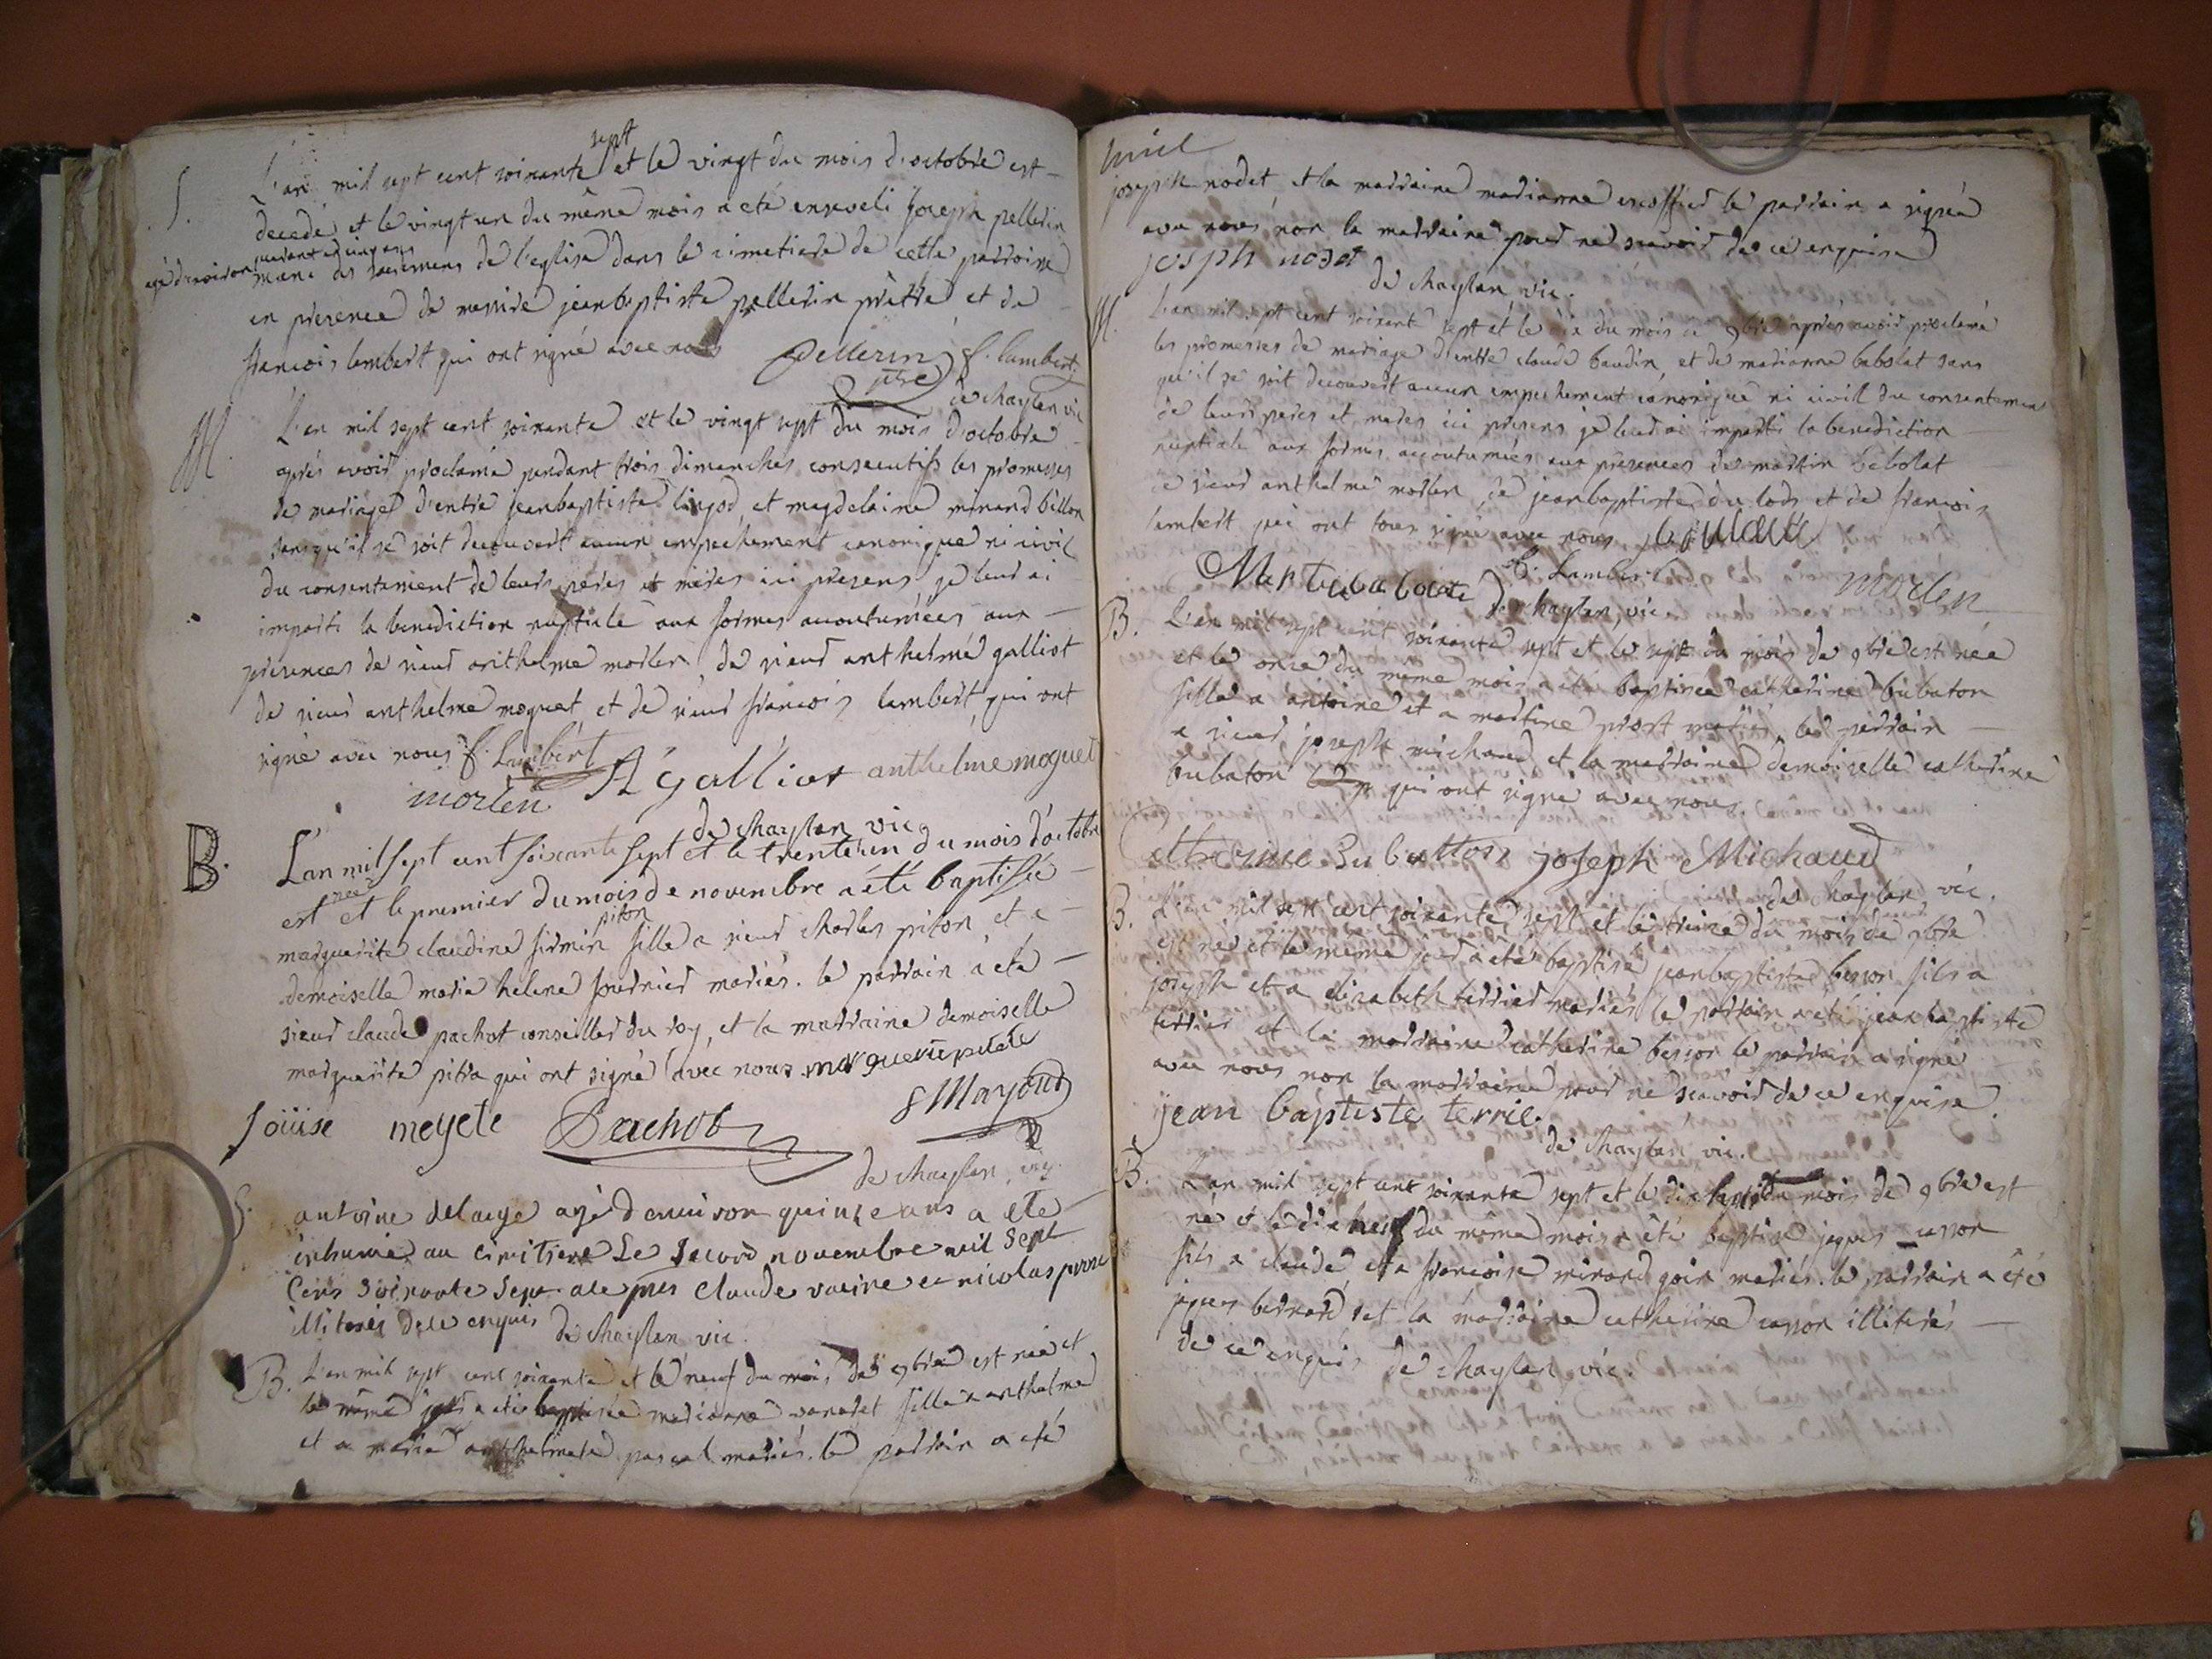 S.
L'an mil sept cent soixante sept et le vingt du mois d'octobre est
decedé et le vingt un du même mois a eté enseveli Joseph pellerin
agé d'environ quarante cinq ans
muni des sacremens de l'eglise dans le cimetiere de cette parroisse
en presence de messire jeanbaptiste pellerin prêtre et de
francois lambert qui ont signé avec nous Pellerin ptre f. lambert
de chaylan vic
M.
L'an mil sept cent soixante et le vingt sept du mois d'octobre
aprés avoir proclamé pendant trois dimanches consecutifs les promesses
de mariage d'entre jeanbaptiste lingod et magdelaine minand billon
sans qu'il se soit decouvert aucun empechement canonique ni civil
du consentement de leurs peres et méres ici presens je leur ai
imparti la benediction nuptiale aux formes accoutumées aux
présences de sieur anthelme morlen de sieur anthelme galliot
de sieur anthelme moguet et de sieur francois lambert qui ont
signé avec nous f. Lambert A galliot anthelme moguet
morlen
de chaylan vic
B.
L'an mil sept cent soixante sept et le trente un du mois d'octobre
est née et le premier du mois de novembre a été baptisée
marguerite claudine firmin piton fille a sieur charles piton et a
demoiselle marie helene fournier mariés. le parrain a eté
sieur claude pachot conseiller du roy, et la marraine demoiselle
marguerite pitra qui ont signé avec nous marguerite
Soüise meyete Pachot Mayoud
de chaylan vic.
S.
antoine delaige agé denviron quinze ans a ete
inhumé au cimitiere Le second novembre mil sept
cens soixante sept ale pres claude vacine et nicolas
illiterés de ce enquis de chaylan vic.
B. L'an mil sept cent soixante et le neuf du mois de 9bre est née et
le même jour a eté baptisée marianne fille a anthelme
et a marie anthelmete pascal mariés. le parrain a eté
joseph nodet et la marraine marianne le parrain a signé
avec nous non la marraine pour ne scavoir de ce enquise
josph nodet
de chaylan vic.
M. L'an mil sept cent soixante sept et le dix du mois de 9bre aprés avoir proclamé
les promesses de mariage d'entre claude baudin, et de marianne babolat sans
qu'il se soit decouvert aucun empechement canonique ni civil du consentement
de leurs peres et meres ici presens je leur ai imparti la benediction
nuptiale aux formes accoutumées aux présences de martin babolat
de sieur anthelme morlen, de jeanbaptiste du lods et de francois
lambert qui ont tous signé avec nous
f. Lambert morlen
de chaylan vic
B. L'an mil sept cent soixante sept et le sept du mois de 9bre est née
et le onze du même mois a eté baptisée catherine bubaton
fille a antoine et a martine prost mariés, le parrain
a sieur joseph michaud et la marraine demoiselle catherine
bubaton qui ont signé avec nous.
joseph Michaud
de chaylan vic.
B. L'an mil sept cent soixante sept et le treize du mois de 9bre
est né et le même jour a eté baptisé jeanbaptiste besson fils a
joseph et a elizabeth terrier mariés le parrain a eté jean baptiste
terrier et la marraine catherine besson le parrain a signé
avec nous non la marraine pour ne scavoir de ce enquise.
jean baptiste terrie
de chaylan vic.
B. L'an mil sept cent soixante sept et le dix sept du mois de 9bre est
né et le dix neuf du même mois a été baptisé jaques casson
fils a claude et a francoise minand goin mariés. le parrain a été
jaques bernard et la marraine catherine casson illiterés
de ce enquis de chaylan vic.